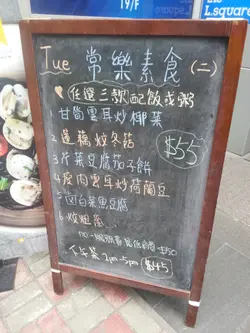 19/F
L.square
Tue 常樂素食 (二)
任選三款配飲或粥
1 甘筍雲耳炒椰菜
2 蓮藕炆冬菇
$55
3 芹菜豆腐茄子餅
4 皮肉雲耳炒荷蘭豆
5 白菜魚豆腐
6
下午茶 2pm-5pm $45